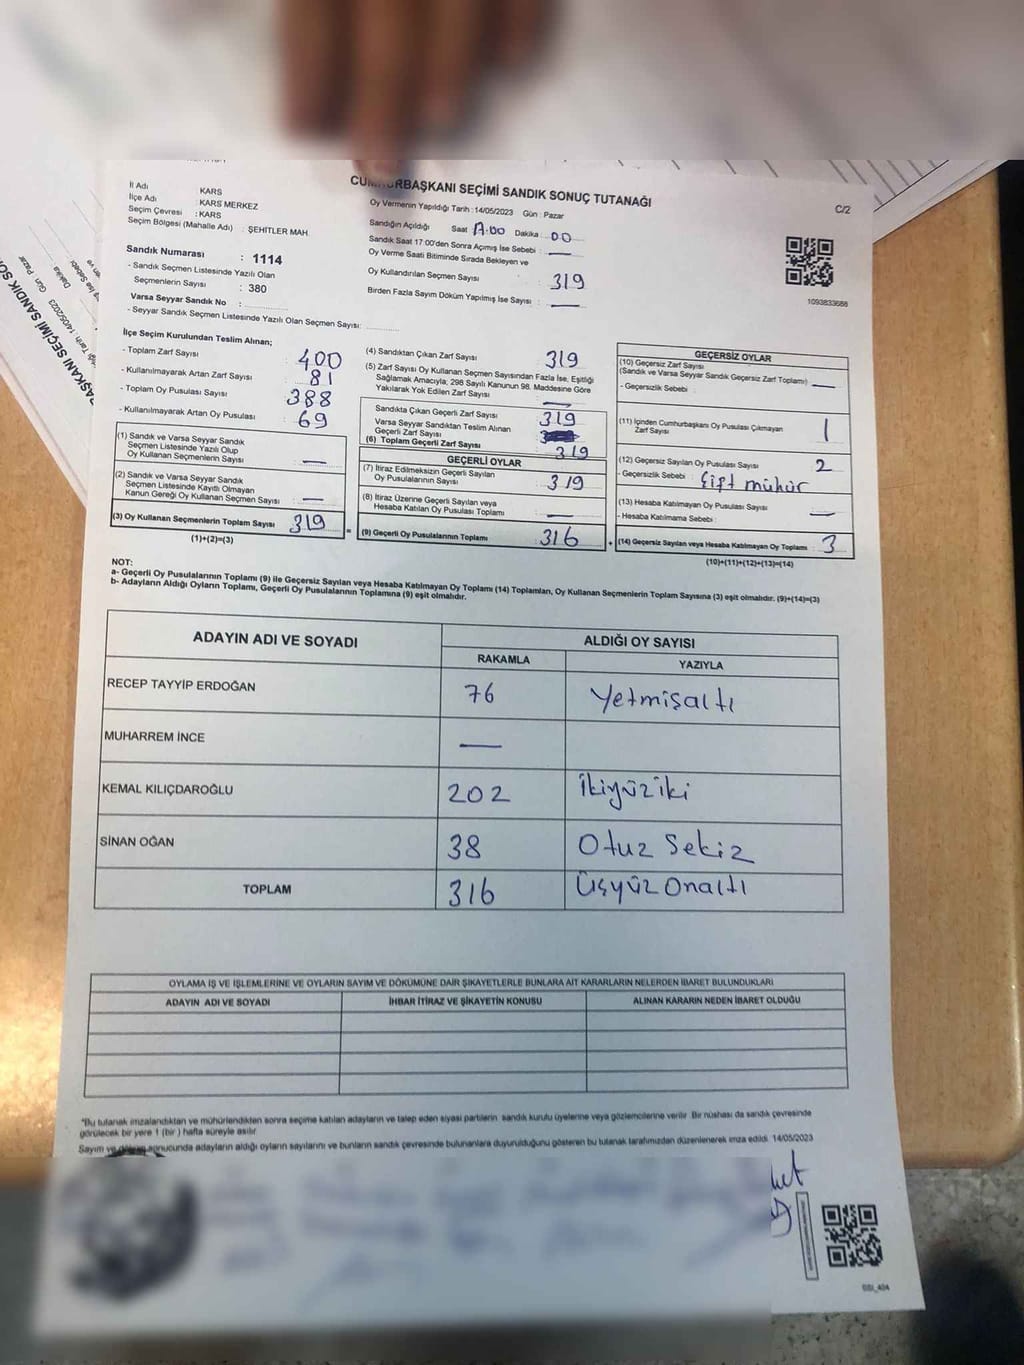 CUMHURBAŞKANI SEÇİMİ SANDIK SONUÇ TUTANAĞI
C/2
İl Adı KARS
İlçe Adı : KARS MERKEZ
Seçim Çevresi : KARS
Seçim Bölgesi (Mahalle Adı) : ŞEHİTLER MAH.
Sandık Numarası : 1114
- Sandık Seçmen Listesinde Yazılı Olan
Seçmenlerin Sayısı : 380
Varsa Seyyar Sandık No :
- Seyyar Sandık Seçmen Listesinde Yazılı Olan Seçmen Sayısı:
Oy Vermenin Yapıldığı Tarih : 14/05/2023 Gün : Pazar
Sandığın Açıldığı Saat Dakika : 00
Sandık Saat 17:00'den Sonra Açımış İse Sebebi : —
Oy Verme Saati Bitiminde Sırada Bekleyen ve
Oy Kullandırılan Seçmen Sayısı 319
Birden Fazla Sayım Döküm Yapılmış İse Sayısı : —
1093833688
İlçe Seçim Kurulundan Teslim Alınan;
- Toplam Zarf Sayısı : 400
- Kullanılmayarak Artan Zarf Sayısı : 81
- Toplam Oy Pusulası Sayısı : 388
- Kullanılmayarak Artan Oy Pusulası : 69
(1) Sandık ve Varsa Seyyar Sandık
Seçmen Listesinde Yazılı Olup
Oy Kullanan Seçmenlerin Sayısı : —
(2) Sandık ve Varsa Seyyar Sandık
Seçmen Listesinde Kayıtlı Olmayan
Kanun Gereği Oy Kullanan Seçmen Sayısı : —
(3) Oy Kullanan Seçmenlerin Toplam Sayısı : 319
(1)+(2)=(3)
(4) Sandıktan Çıkan Zarf Sayısı : 319
(5) Zarf Sayısı Oy Kullanan Seçmen Sayısından Fazla İse, Eşitliği
Sağlamak Amacıyla, 298 Sayılı Kanunun 98. Maddesine Göre
Yakılarak Yok Edilen Zarf Sayısı : —
Sandıkta Çıkan Geçerli Zarf Sayısı : 319
Varsa Seyyar Sandıktan Teslim Alınan
Geçerli Zarf Sayısı
(6) Toplam Geçerli Zarf Sayısı : 319
GEÇERLİ OYLAR
(7) İtiraz Edilmeksizin Geçerli Sayılan
Oy Pusulalarının Sayısı : 319
(8) İtiraz Üzerine Geçerli Sayılan veya
Hesaba Katılan Oy Pusulası Toplamı : —
= (9) Geçerli Oy Pusulalarının Toplamı : 316
GEÇERSİZ OYLAR
(10) Geçersiz Zarf Sayısı
(Sandık ve Varsa Seyyar Sandık Geçersiz Zarf Toplamı) : —
- Geçersizlik Sebebi :
(11) İçinden Cumhurbaşkanı Oy Pusulası Çıkmayan
Zarf Sayısı 1
(12) Geçersiz Sayılan Oy Pusulası Sayısı : 2
- Geçersizlik Sebebi : Çift mühür
(13) Hesaba Katılmayan Oy Pusulası Sayısı : —
- Hesaba Katılmama Sebebi :
+ (14) Geçersiz Sayılan veya Hesaba Katılmayan Oy Toplamı : 3
(10)+(11)+(12)+(13)=(14)
NOT:
a- Geçerli Oy Pusulalarının Toplamı (9) ile Geçersiz Sayılan veya Hesaba Katılmayan Oy Toplamı (14) Toplamları, Oy Kullanan Seçmenlerin Toplam Sayısına (3) eşit olmalıdır. (9)+(14)=(3)
b- Adayların Aldığı Oyların Toplamı, Geçerli Oy Pusulalarının Toplamına (9) eşit olmalıdır.
ADAYIN ADI VE SOYADI ALDIĞI OY SAYISI
RAKAMLA YAZIYLA
RECEP TAYYİP ERDOĞAN 76 Yetmişaltı
MUHARREM İNCE —
KEMAL KILIÇDAROĞLU 202 İkiyüziki
SİNAN OĞAN 38 Otuz Sekiz
TOPLAM 316 Üçyüz Onaltı
OYLAMA İŞ VE İŞLEMLERİNE VE OYLARIN SAYIM VE DÖKÜMÜNE DAİR ŞİKAYETLERLE BUNLARA AİT KARARLARIN NELERDEN İBARET BULUNDUKLARI
ADAYIN ADI VE SOYADI İHBAR İTİRAZ VE ŞİKAYETİN KONUSU ALINAN KARARIN NEDEN İBARET OLDUĞU
*Bu tutanak imzalandıktan ve mühürlendikten sonra seçime katılan adayların ve talep eden siyasi partilerin sandık kurulu üyelerine veya gözlemcilerine verilir. Bir nüshası da sandık çevresinde
görülecek bir yere 1 (bir) hafta süreyle asılır.
Sayım ve döküm sonucunda adayların aldığı oyların sayılarını ve bunların sandık çevresinde bulunanlara duyurulduğunu gösteren bu tutanak tarafımızdan düzenlenerek imza edildi. 14/05/2023